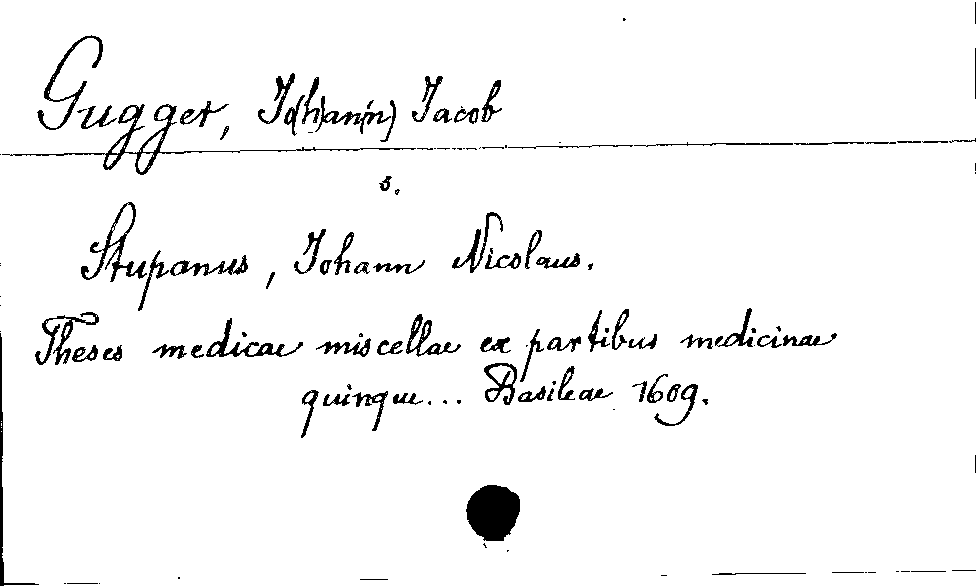 Gugger, Jo(h)an(n) Jacob
s.
Stupanus, Johann Nicolaus.
Theses medicae miscellae ex partibus medicinae
quinque... Basileae 1609.